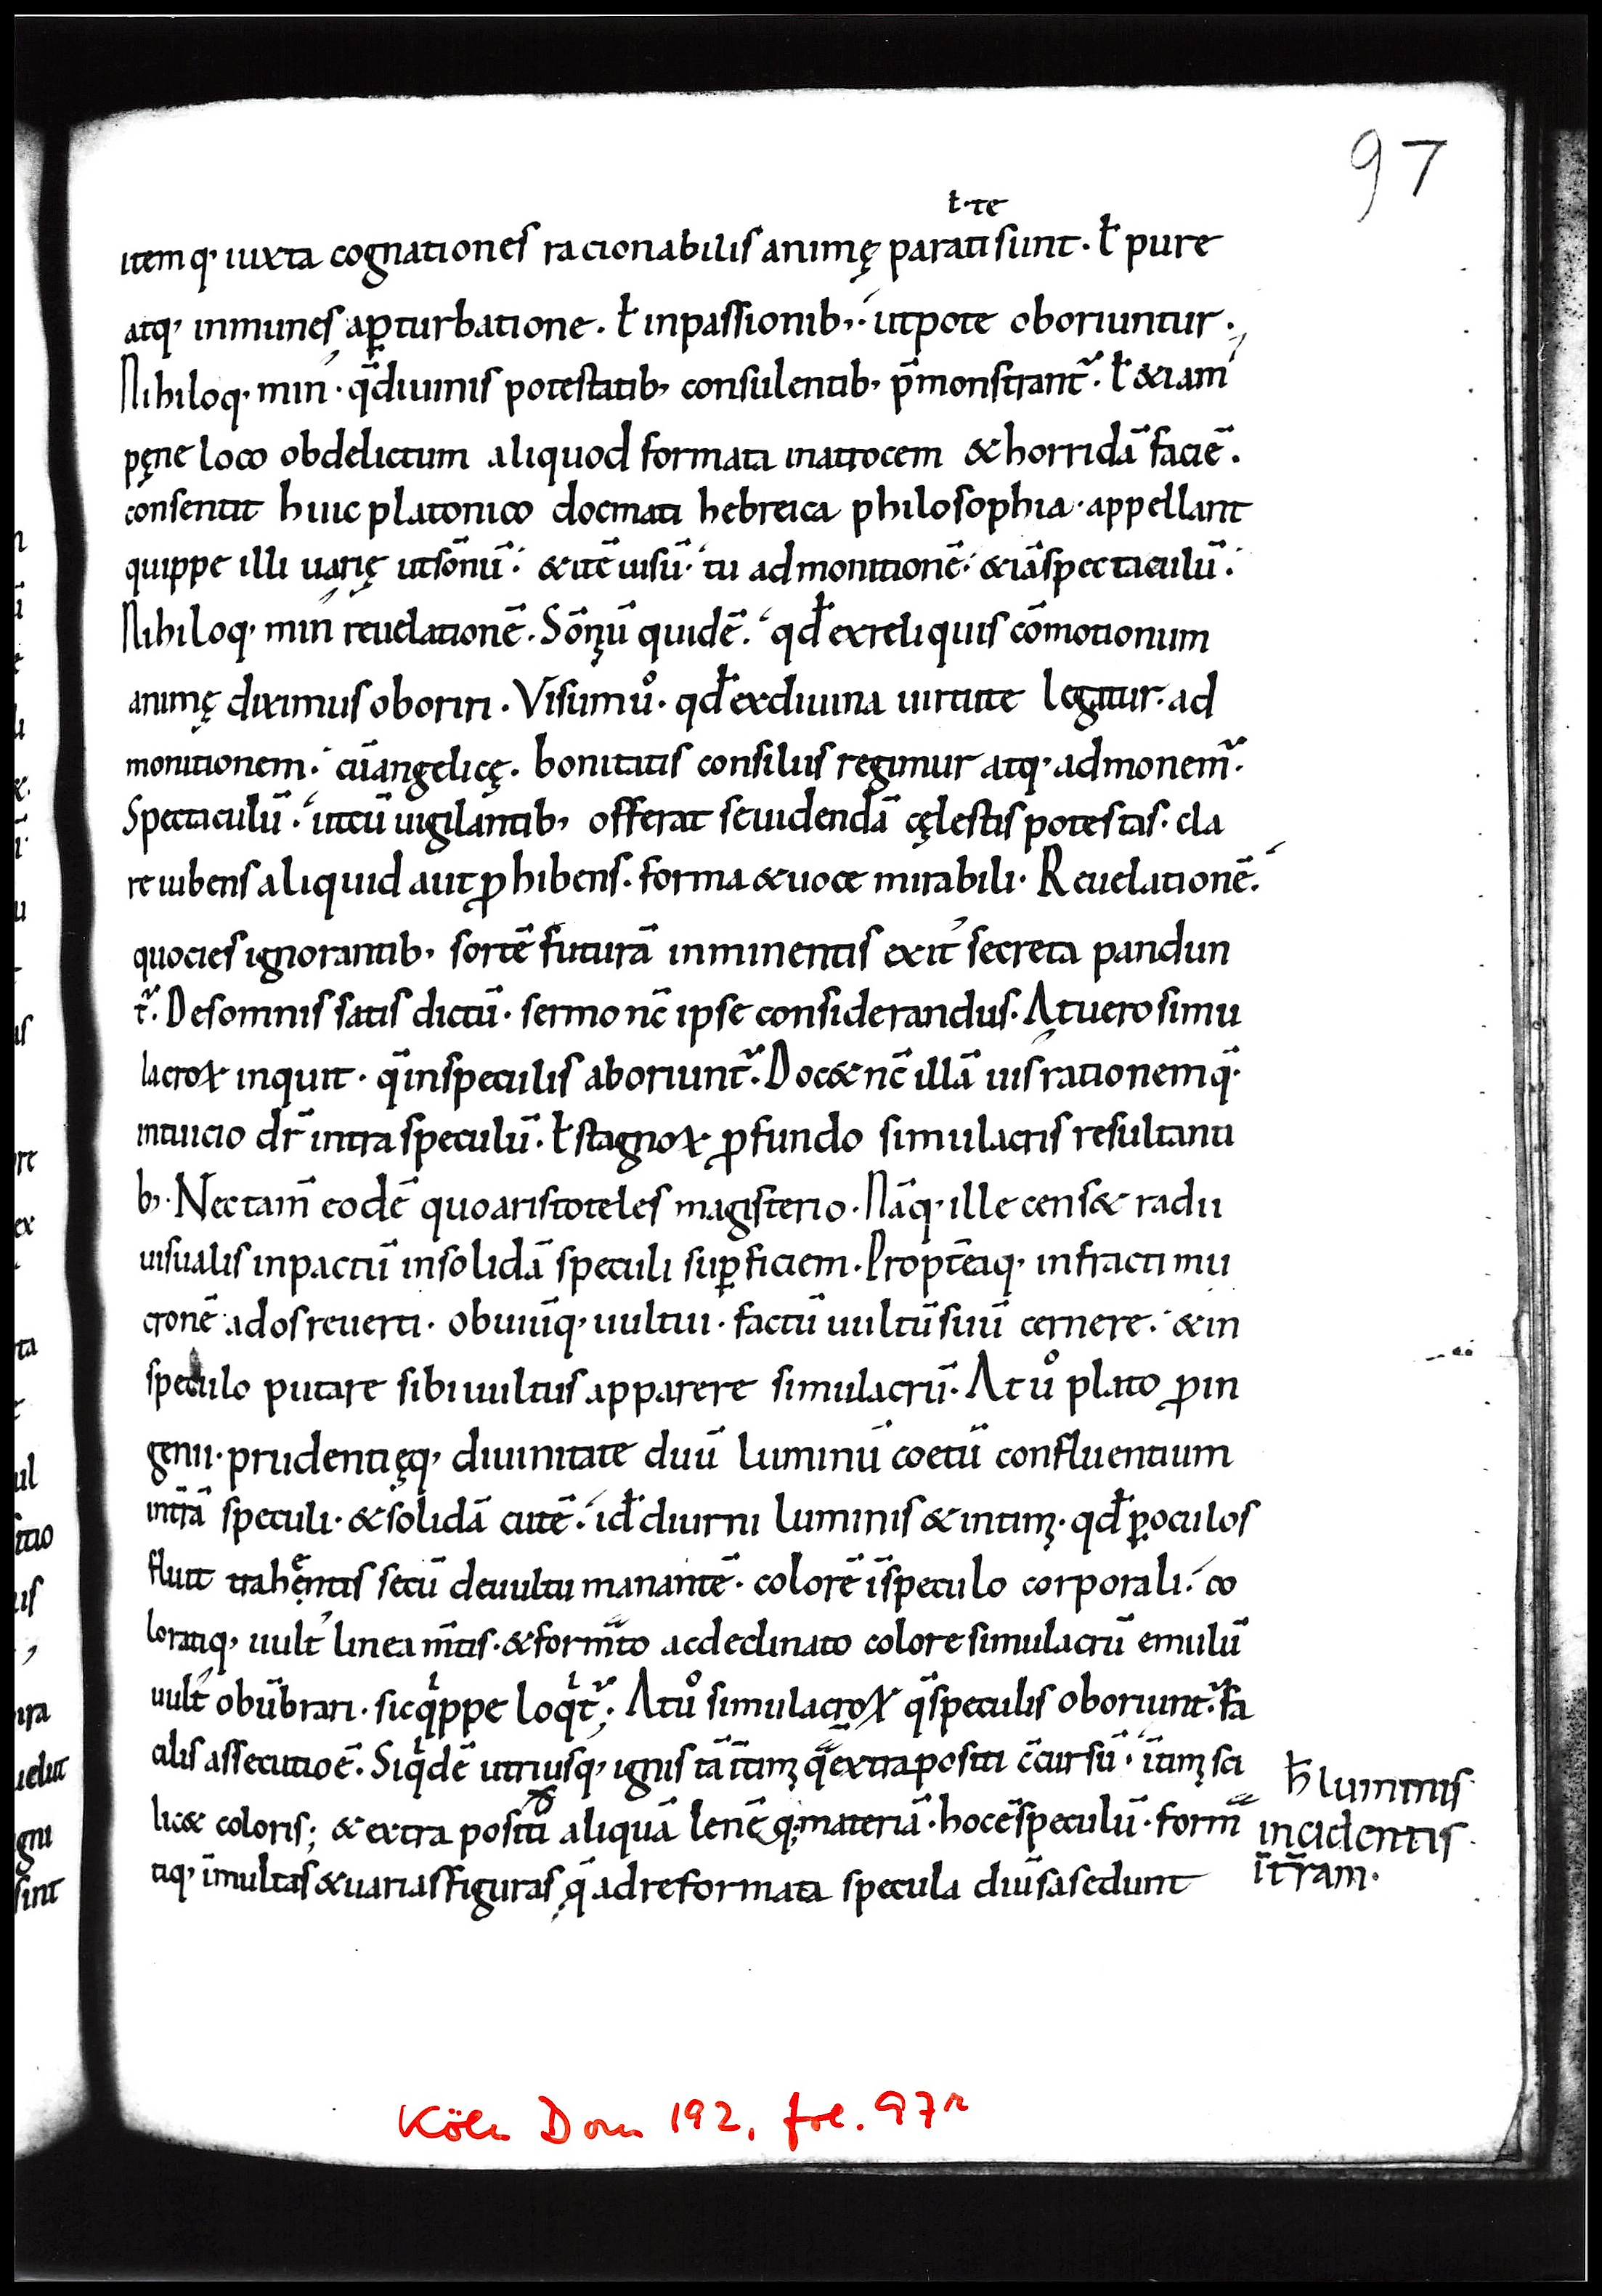 97
ł·te
itemq· iuxta cognationes racionabilis animę parati sunt · ł pure
atq· inmunes aꝑturbatione · ł inpassionib; · utpote oboriuntur ·
Nihiloq· min᾽ · q̄ diuinis potestatib; consulentib; p̄monstrant᷑ · ł &iam
pęne loco obdelictum aliquod formata inatrocem & horridā faciē ·
consentit huic platonico docmati hebreica philosophia · appellant
quippe illi uarię utsōnū · & itē uisū · tū admonitionē · & iā spectaculū ·
Nihiloq· min᾽ reuelationē · Sōnū quidē · qđ exreliquis cōmotionum
animę diximus oboriri · Visum ů · qđ exdiuina uirtute legitur · ad
monitionem · cū angelicę · bonitatis consiliis regimur atq· admonem᷑ ·
Spectaculū · utcū uigilantib; offerat seuidendā cęlestis potestas · cla
re iubens aliquid aut ꝓhibens · forma & uoce mirabili · Reuelationē ·
quocies ignorantib; sortē futurā inminentis exit᾽ secreta pandun
t᷑ · Desomnis satis dictū · sermo nc̄ ipse considerandus · At uero simu
lacroꝝ inquit · q̄ inspeculis aboriunt᷑ · Doc& nc̄ illā uisrationemq̄ ·
intuicio dr̄ intra speculū · ł stagnoꝝ ꝓfundo simulacris resultanti
b; · Nec tam̄ eodē quo aristoteles magisterio · Nāq· ille cens& radii
uisualis inpactū insolidā speculi suꝑficiem · Proptēaq· infracti mu
cronē ad os reuerti · obuiūq· uultui · factū uultū suū cernere · & in
speculo putare sibi uultus apparere simulacrū · At ů plato ꝓ in
genii · prudentięq· diuinitate duū luminū coetū confluentium
intrā speculi · & solidā cutē · iđ diurni luminis & intimꝫ · qđ ꝑ oculos
fluit trahentis secū deuultu manantē · colorē ī speculo corporali · co
loratiq· uult᾽ lineam̄tis · & form̄to acdeclinato colore simulacrū emulū
uult᾽ obūbrari · sic qͥppe loqͥt᷑ · At ů simulacroꝝ q̄ speculis oboriunt᷑ · fa
cilis assecutio ē · Siqͥdē utriusq· ignis tā ītimꝫ q̄ extra positi c̄cursū · ītimꝫ sci
lic& coloris; & extra positū aliquā lenē q· materiā · hoc ē speculū · form̄
tiq· īmultas & uarias figuras q̄ ad reformata specula diūsa sedunt
h̄ luminis
incidentis ·
ītr̄am ·
Köln Dom 192, fol. 97r